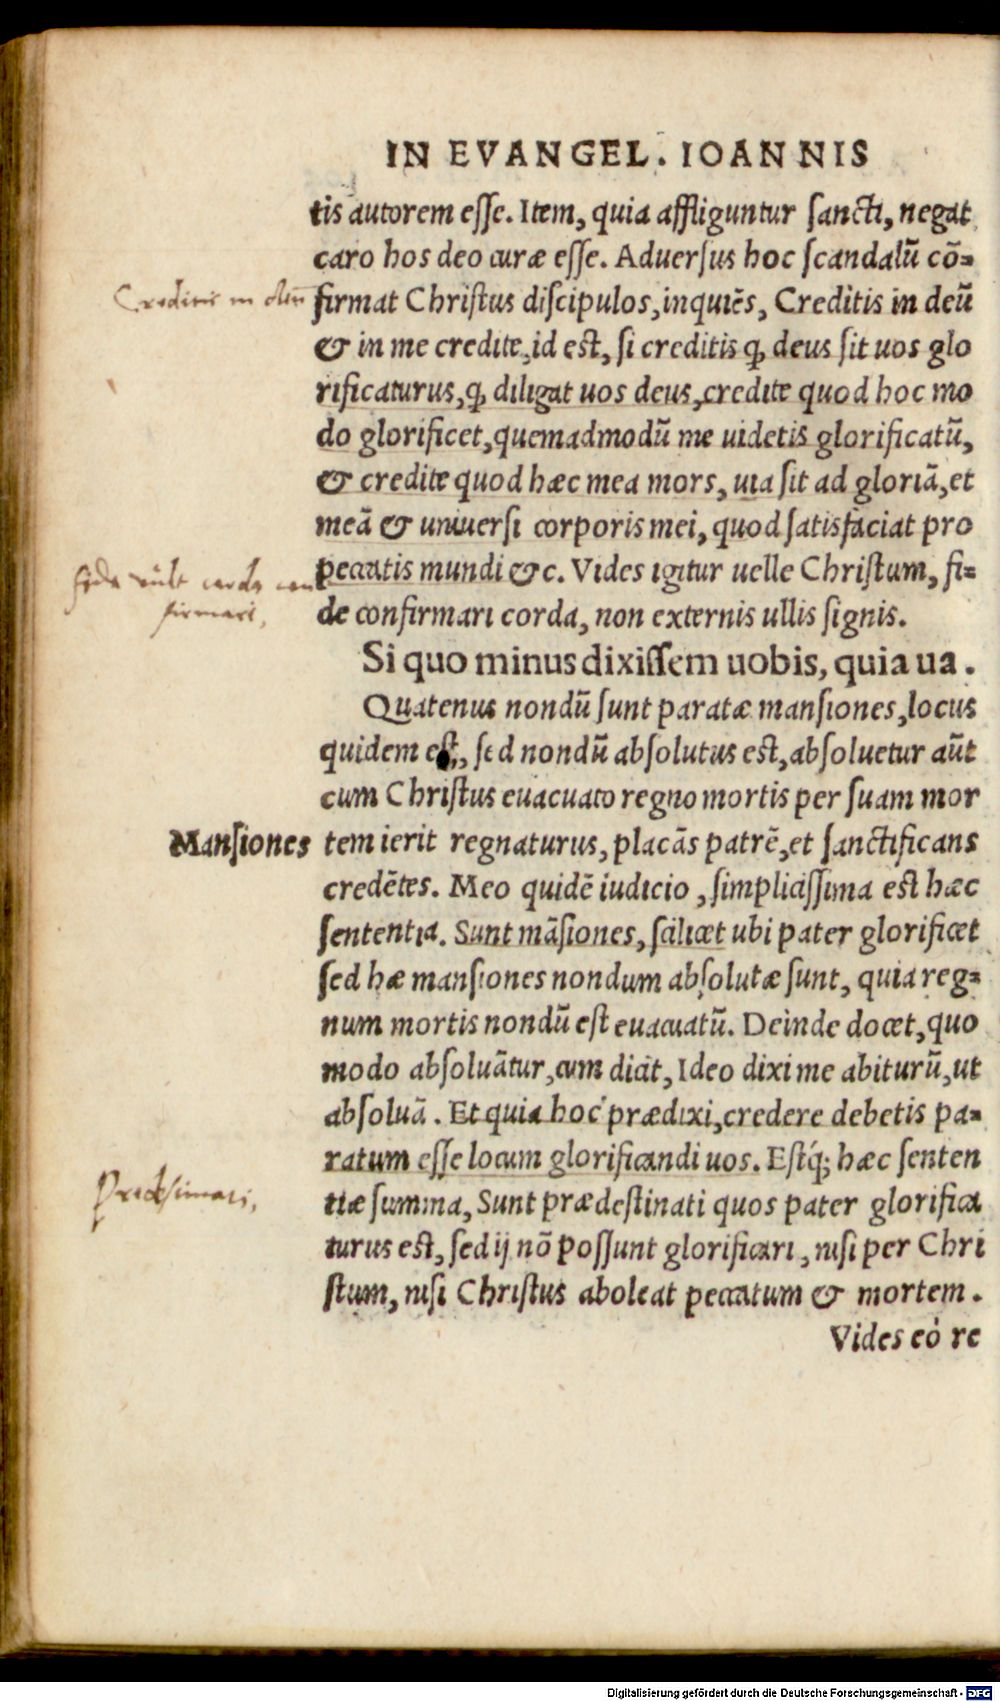 IN EVANGEL. IOANNIS
tis autorem esse. Item, quia affliguntur sancti, negat
caro hos deo curæ esse. Aduersus hoc scandalũ cõ=
Creditis in deũ
firmat Christus discipulos, inquiẽs, Creditis in deũ
& in me credite, id est, si creditis ꝙ deus sit uos glo
rificaturus, ꝙ diligat uos deus, credite quod hoc mo
do glorificet, quemadmodũ me uidetis glorificatũ,
& credite quod hæc mea mors, uia sit ad gloriã, et
meã & uniuersi corporis mei, quod satisfaciat pro
peccatis mundi &c. Vides igitur uelle Christum, fi=
Fide vult corda con
firmari,
de confirmari corda, non externis ullis signis.
Si quo minus dixissem uobis, quia ua.
Quatenus nondũ sunt paratæ mansiones, locus
quidem est, sed nondũ absolutus est, absoluetur aũt
cum Christus euacuato regno mortis per suam mor
Mansiones
tem ierit regnaturus, placãs patrẽ, et sanctificans
credẽtes. Meo quidẽ iudicio, simplicissima est hæc
sententia. Sunt mãsiones, scilicet ubi pater glorificet
sed hæ mansiones nondum absolutæ sunt, quia reg=
num mortis nondũ est euacuatũ. Deinde docet, quo
modo absoluãtur, cum dicit, Ideo dixi me abiturũ, ut
absoluã. Et quia hoc prædixi, credere debetis pa=
ratum esse locum glorificandi uos. Estq́; hæc senten
tiæ summa, Sunt prædestinati quos pater glorifica
turus est, sed ij nõ possunt glorificari, nisi per Chri
stum, nisi Christus aboleat peccatum & mortem.
Vides eó re
Digitalisierung gefördert durch die Deutsche Forschungsgemeinschaft - DFG